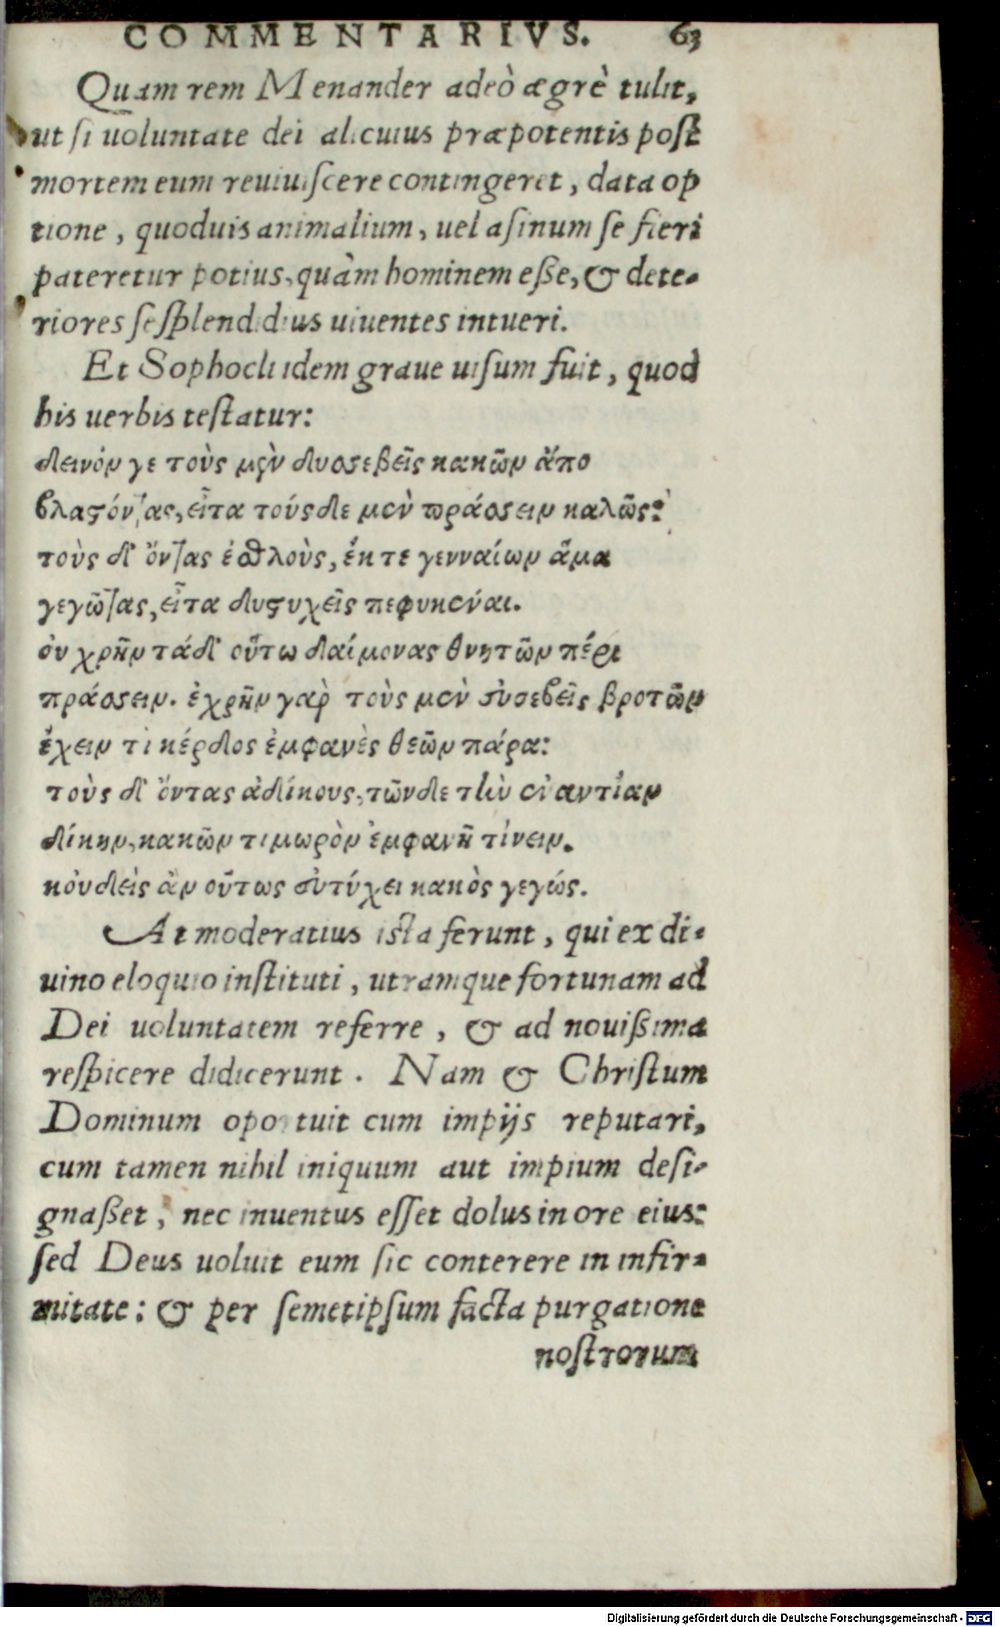 COMMENTARIVS. 63
Quam rem Menander adeò ægrè tulit,
ut si uoluntate dei alicuius præpotentis post
mortem eum reuiuiscere contingeret, data op
tione, quoduis animalium, uel asinum se fieri
pateretur potius, quàm hominem esse, & dete-
riores se splendidius uiuentes intueri.
Et Sophocli idem graue uisum fuit, quod
his uerbis testatur:
δεινόν γε τοὺς μὲν δυσσεβεῖς κακῶν ἄπο
βλαστόντας, εἶτα τούσδε μὲν πράσσειν καλῶς:
τοὺς δ' ὄντας ἐσθλοὺς, ἔκ τε γενναίων ἅμα
γεγῶτας, εἶτα δυστυχεῖς πεφυκέναι.
οὐ χρῆν τάδ' οὕτω δαίμονας θνητῶν πέρι
πράσσειν. ἐχρῆν γὰρ τοὺς μὲν εὐσεβεῖς βροτῶν
ἔχειν τὶ κέρδος ἐμφανὲς θεῶν πάρα:
τοὺς δ' ὄντας ἀδίκους, τῶνδε τὴν ἐναντίαν
δίκην, κακῶν τιμωρὸν ἐμφανῆ τίνειν.
κοὐδεὶς ἂν οὕτως εὐτύχει κακὸς γεγώς.
At moderatius ista ferunt, qui ex di-
uino eloquio instituti, utramque fortunam ad
Dei uoluntatem referre, & ad nouissima
respicere didicerunt. Nam & Christum
Dominum oportuit cum impijs reputari,
cum tamen nihil iniquum aut impium desi-
gnasset, nec inuentus esset dolus in ore eius:
sed Deus uoluit eum sic conterere in infir-
mitate: & per semetipsum facta purgatione
nostrorum
Digitalisierung gefördert durch die Deutsche Forschungsgemeinschaft - DFG